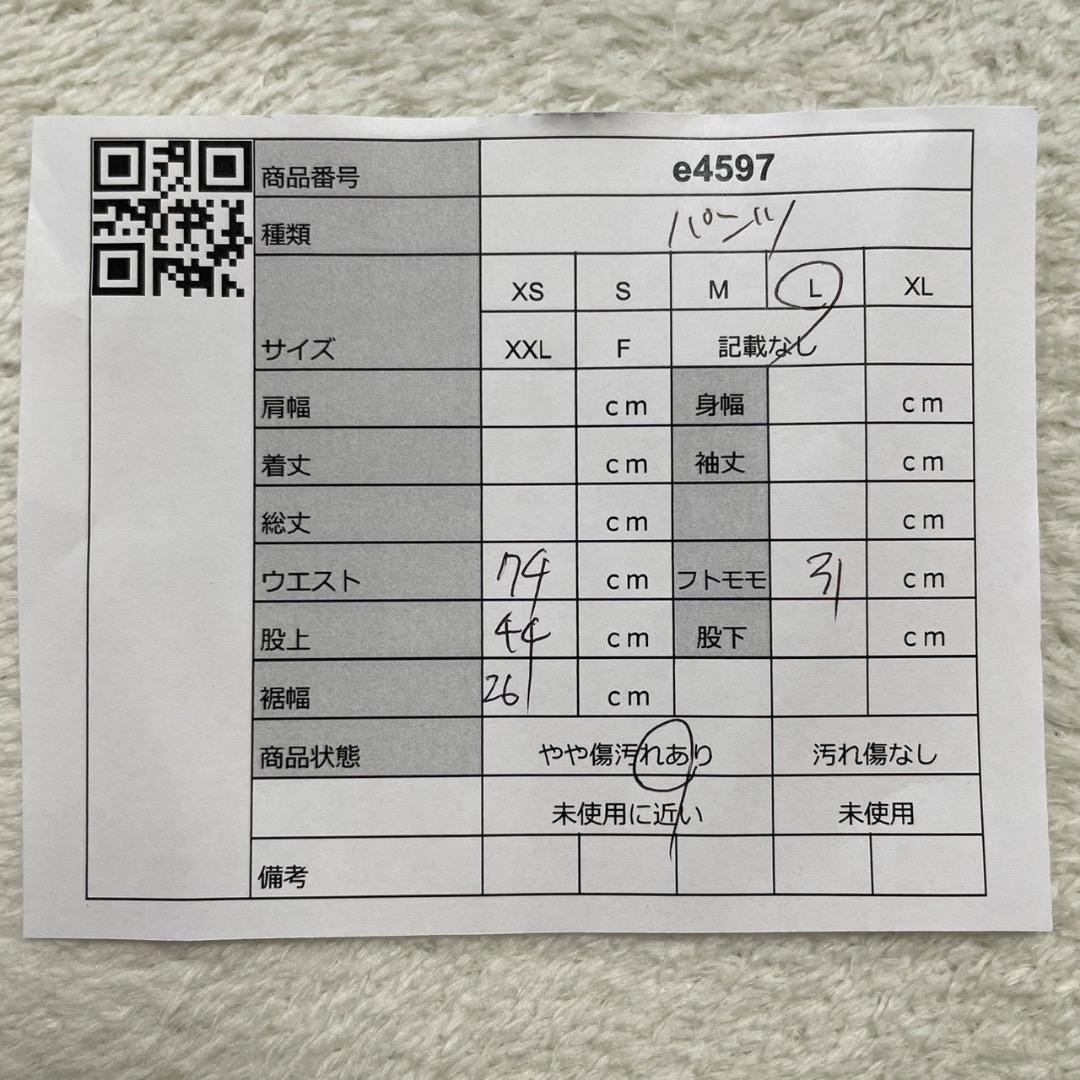 商品番号 e4597
種類 パンツ
XS S M L XL
サイズ XXL F 記載なし
肩幅 cm 身幅 cm
着丈 cm 袖丈 cm
総丈 cm cm
ウエスト 74 cm フトモモ 31 cm
股上 44 cm 股下 cm
裾幅 26 cm
商品状態 やや傷汚れあり 汚れ傷なし
未使用に近い 未使用
備考